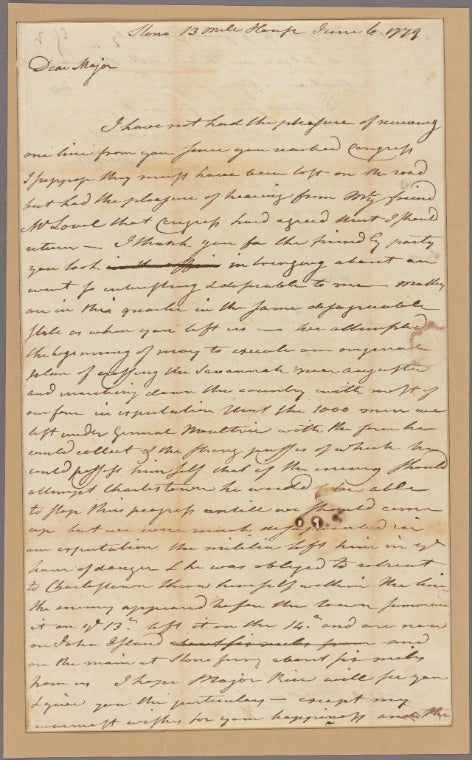 Stono 13 Mile House June 6. 1779
Dear Major
I have not had the pleasure of receiving
one line from you since you reached Congress
I suppose they must have been lost on the road
but had the pleasure of hearing from my friend
Mr Lovel that Congress had agreed that I should
return — I thank you for the friendly party
you took in the affair in bringing about an
event so interesting & desirable to me — matters
are in this quarter in the same disagreeable
state as when you left us — we attempted
the beginning of may to execute our original
plan of crossing the Savannah near Augusta
and marching down the country with most of
our force in expectation that the 1000 men we
left under General Moultrie with the force he
could collect & the strong passes of which he
could possess himself that if the enemy should
attempt Charlestown he would be able
to stop their progress untill we should come
up but we were much disappointed in
our expectation the militia left him in ye
hour of danger & he was obliged to retreat
to Charlestown throw himself within the lines
the enemy appeared before the town
it on ye 13th. left it on the 14th. and are now
on John Island about six miles from and
on the main at Stono ferry about six miles
from us I hope Major Rice will see you
& give you the particulars — except my
warmest wishes for your happiness and the